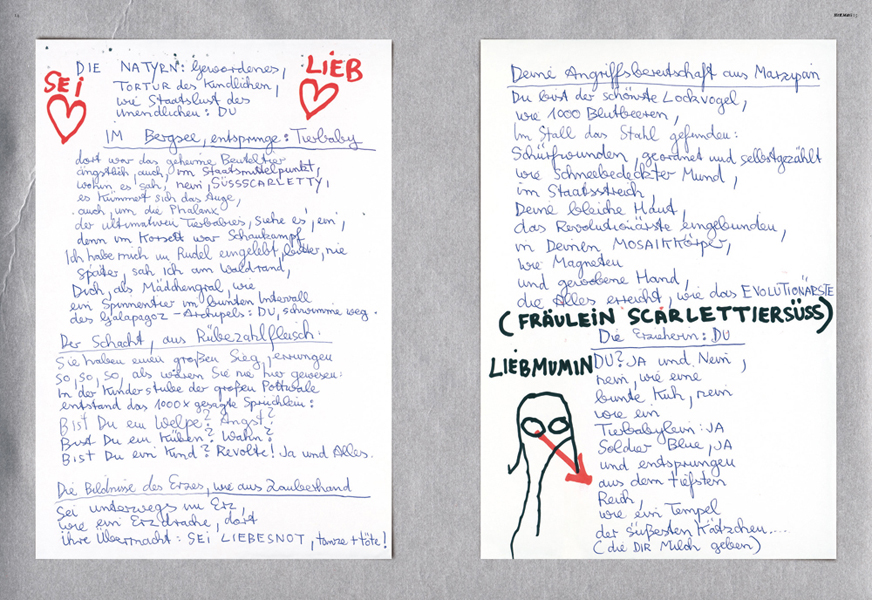 SEi
LIEB
DIE NATYRN: Gewordenes,
TORTUR des Kindlichen,
wie Staatslust des
Unendlichen: DU
IM Bergsee, entsprunge: Tierbaby
dort war das geheime Beuteltier
ängstlich, auch, im Staatsmittelpunkt,
wohin es sah, nein, SÜSSSCARLETTY,
es kümmert sich das Auge,
auch, um die Phalanx
der ultimativen Tierbabies, siehe es, ein,
denn im Korsett war Schaukampf
Ich habe mich im Rudel eingelebt, nie
Später, sah ich am Waldrand,
Dich, als Mädchengral, wie
ein Spinnentier im bunten Intervall
des Galapagoz-Archipels: DU, schwimme weg.
Der Schacht, aus Rübezahlfleisch.
Sie haben einen großen Sieg, errungen
so, so, so, als wären Sie nie hier gewesen:
In der Kinderstube der großen Pottwale
entstand das 1000x gesagte Sprüchlein:
Bist Du ein Welpe? Angst?
Bist Du ein Küken? Wahn?
Bist Du ein Kind? Revolte! Ja und Alles.
Die Bildnisse des Erzes, wie aus Zauberhand
Sei unterwegs im Erz,
wie ein Erzdrache, dort
ihre Übermacht: SEi LIEBESNOT, tanze + töte!
Deine Angriffsbereitschaft aus Marzipan
Du bist der schönste Lockvogel,
wie 1000 Blutbeeren,
Im Stall das Stahl gefunden:
Schürfwunden, geordnet und selbstgezählt
wie Schneebedeckter Mund,
im Staatsstreich
Deine bleiche Haut,
das Revolutionärste eingebunden,
in Deinen MOSAIKKörper,
wie Magneten
und gewobene Hand,
die Alles erreicht, wie das EVOLUTIONÄRSTE
(FRÄULEIN SCARLETTIERSÜSS)
Die Erzieherin: DU
LIEBMUMIN
DU? JA und Nein,
nein, wie eine
bunte Kuh, nein
wie ein
Tierbabylein: JA
Soldier Blue, JA
und entsprungen
aus dem tiefsten
Reich,
wie ein Tempel
der süßesten Kätzchen....
(die DIR Milch geben)